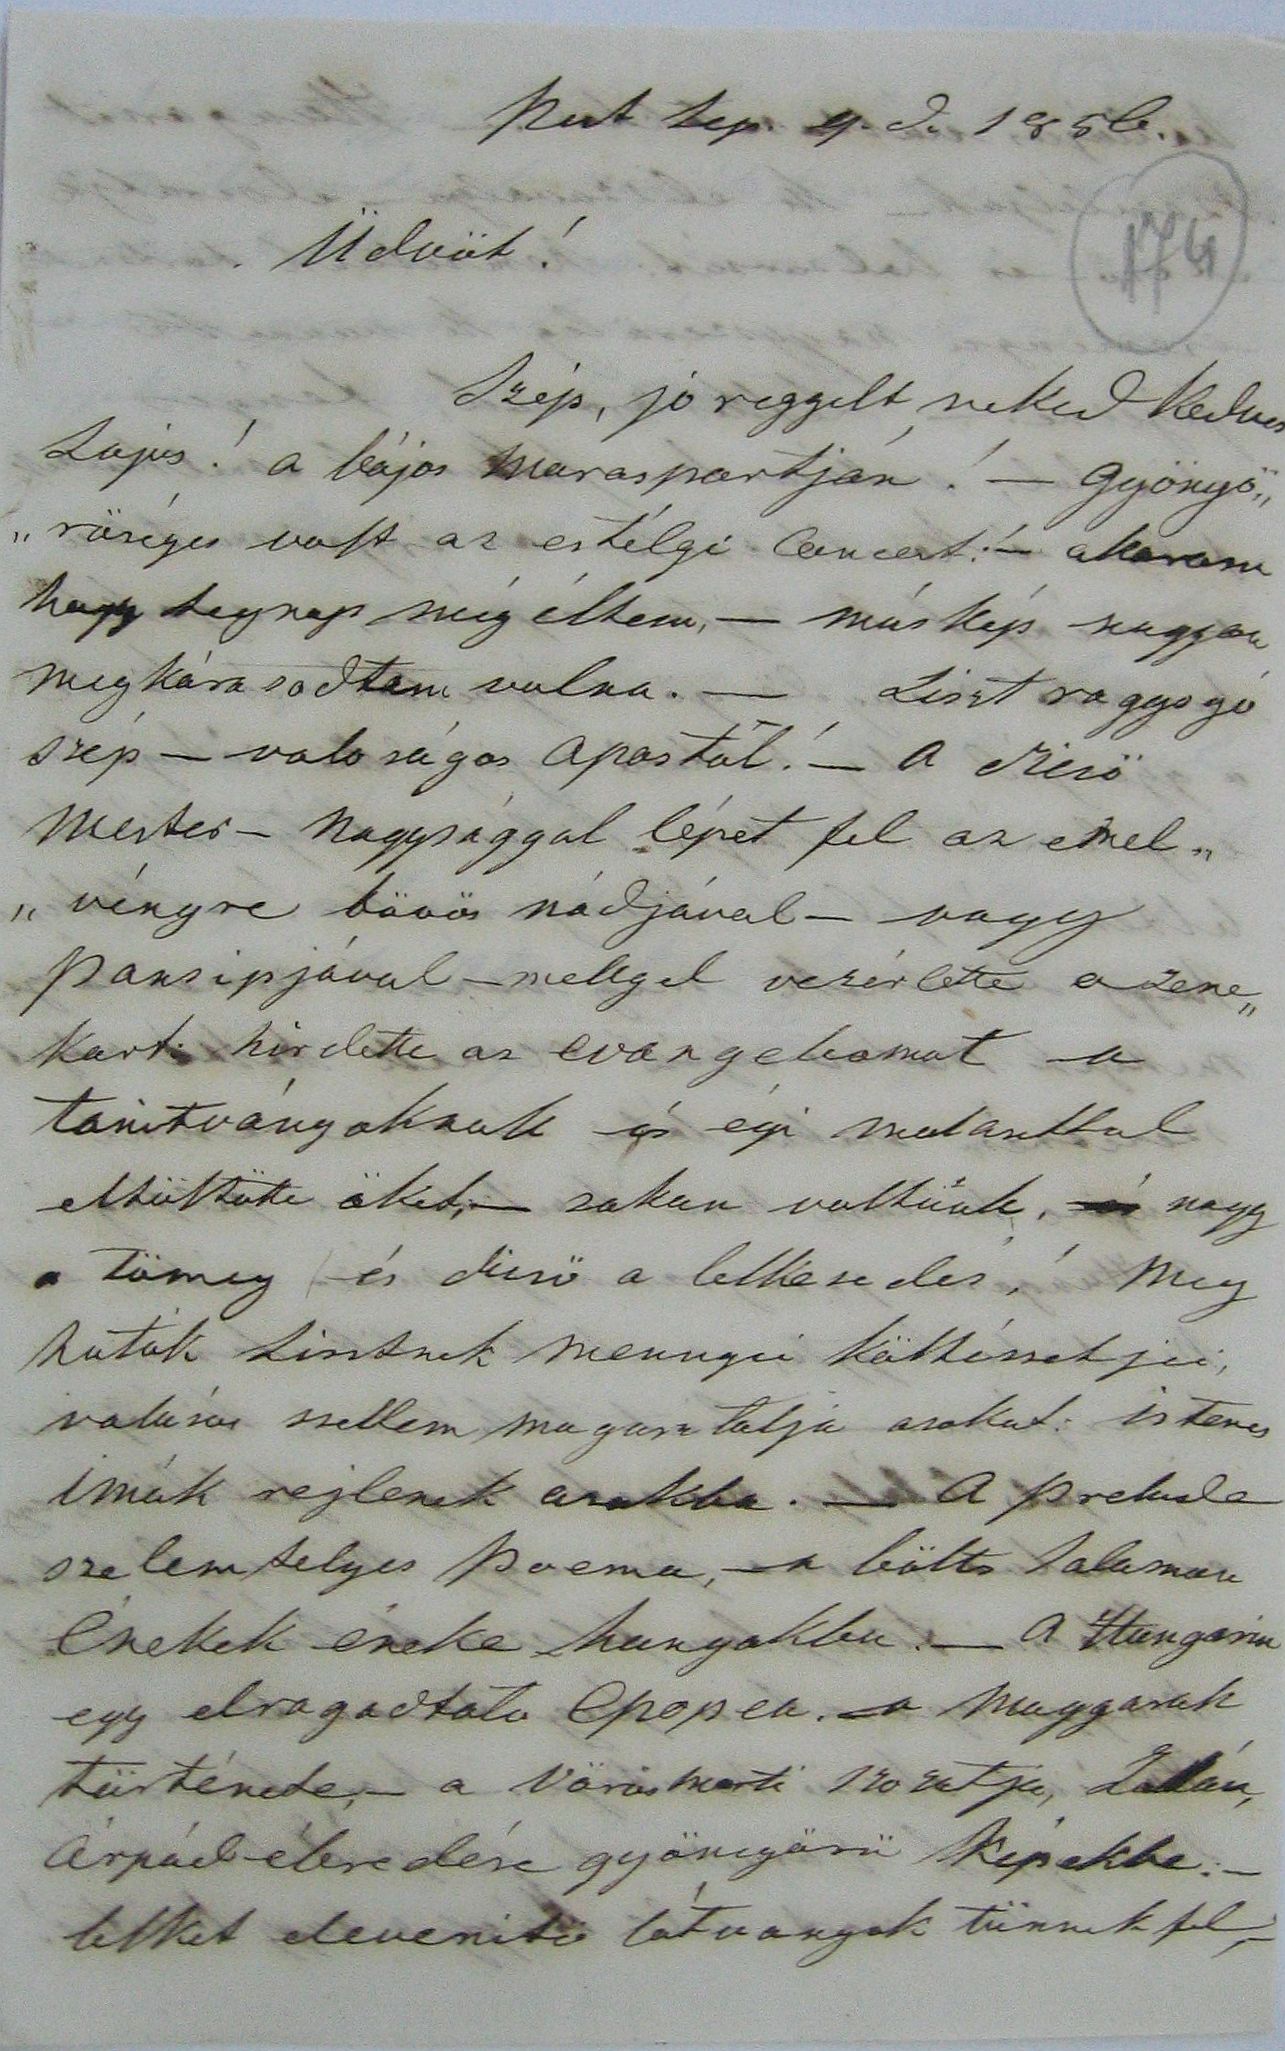 Pest Sep. 9. d. 1856.
174
Üdvöt!
Szép, jó reggelt neked Kedves
Lajos! a bájos Marospartján! — Gyönyö„
„röséges volt az estélyi Concert! — akarom
hogy tegnap még éltem, — máskép nagyon
megkárosodtam volna. — Liszt ragyogó
szép — valoságos Apostól! — A dicsö
Mester — Nagysággal lépet fel az emel„
„vényre büvös nádjával — vagy
Pansipjával — mellyel vezérlette a zene„
kart: hirdette az evangeliomot a
tanitványoknak és égi malaszttal
eltöltötte öket, — sokan voltünk, nagy
a tömeg és dicsö a lelkesedés! Meg
hatók Lisztnek mennyei költészetjei,
vallásos szellem magasztalja azokat: istenes
imák rejlenek azokba. — A Prelude
szelemtelyes Poema, — a bölts Salamon
Énekek éneke hangokba. — A Hungaria
egy elragadtato Epopea. — a Maggarok
története, — a Vörösmarti szozatja, Zalán,
Árpád ébredése gyönyörü Képekbe. —
lelket elevenitö látvanyok tünnek fel, —